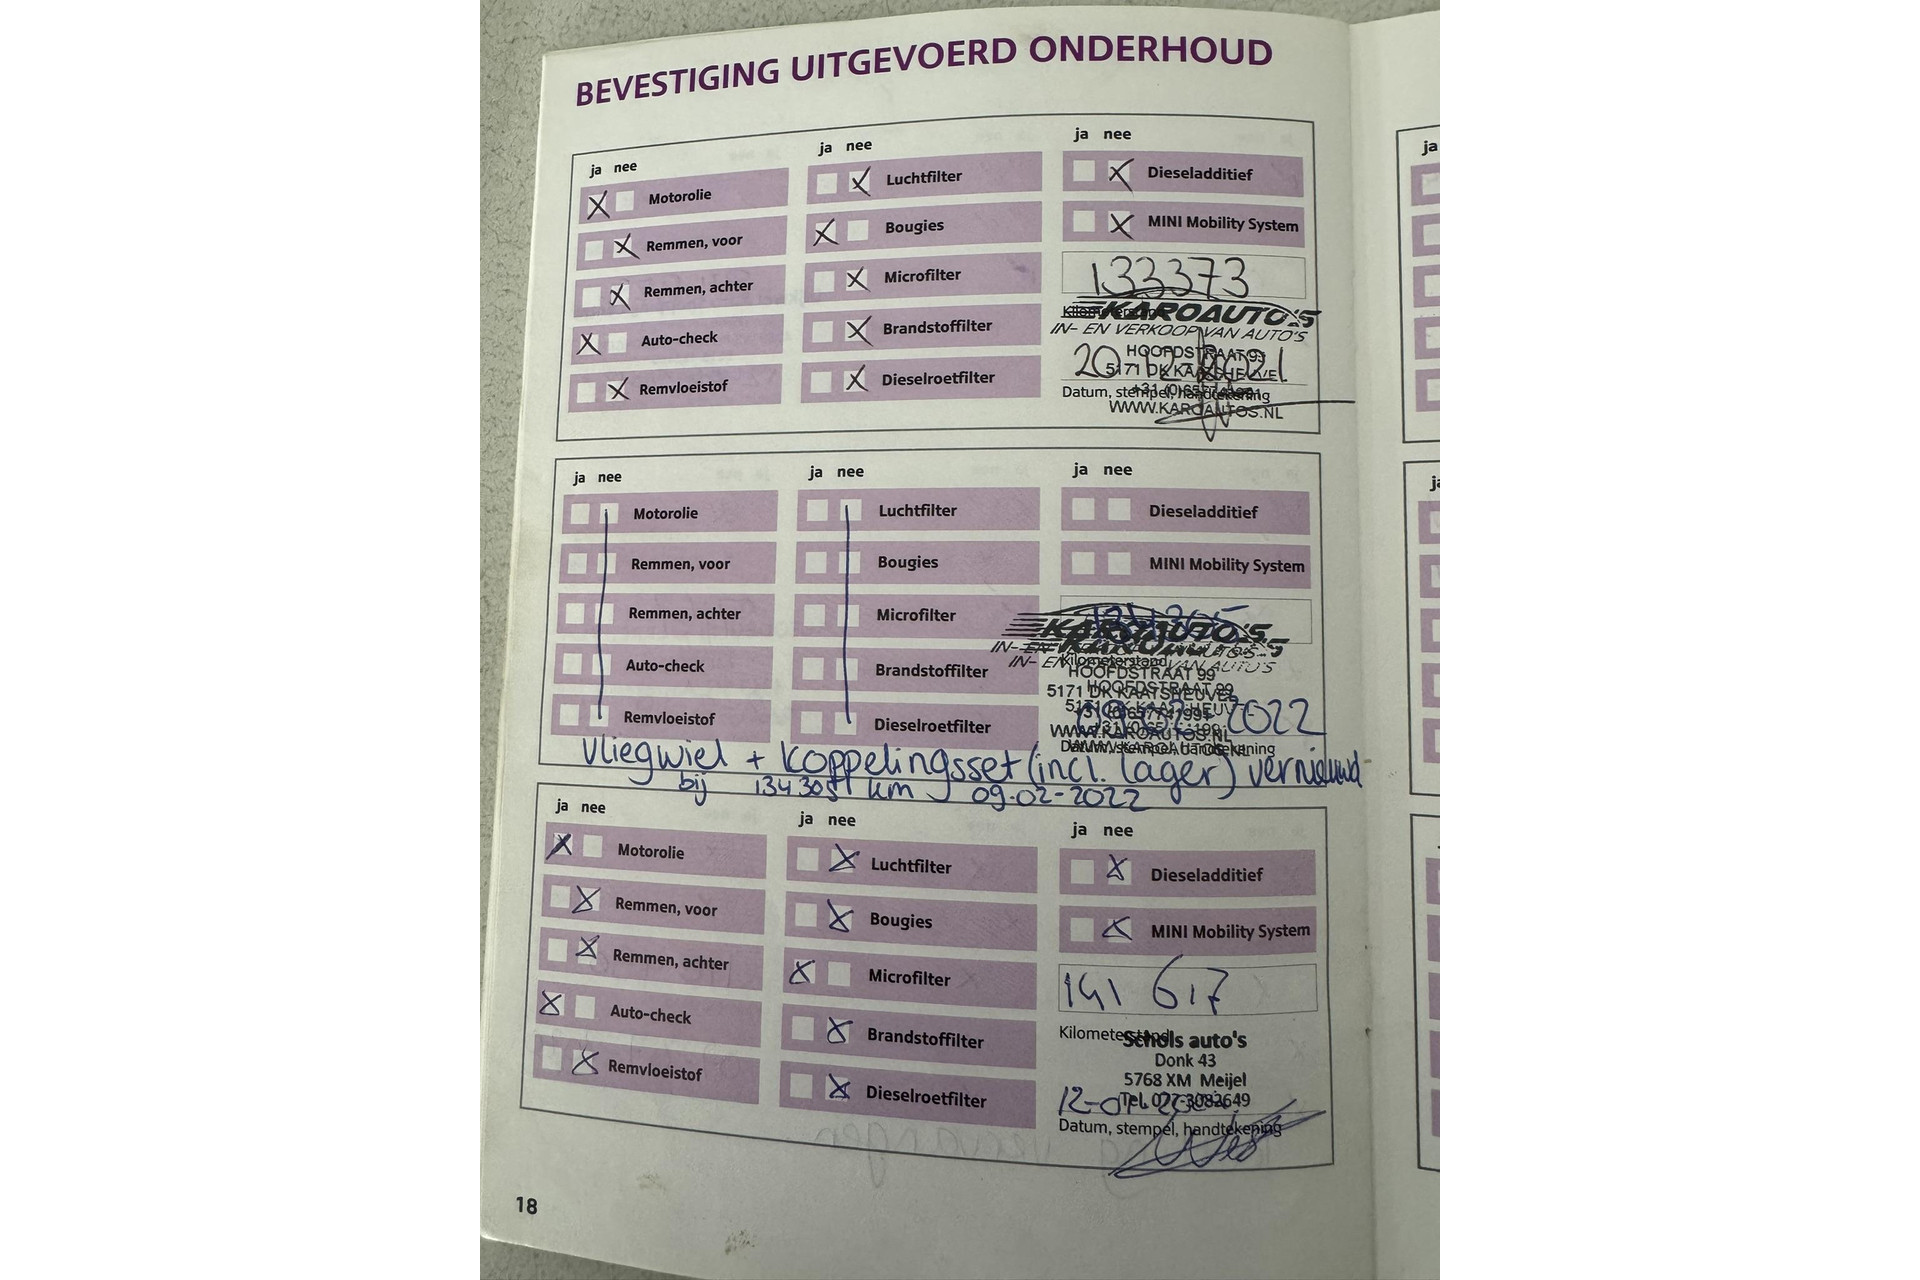 BEVESTIGING UITGEVOERD ONDERHOUD
ja nee
Motorolie
Remmen, voor
Remmen, achter
Auto-check
Remvloeistof
ja nee
Luchtfilter
Bougies
Microfilter
Brandstoffilter
Dieselroetfilter
ja nee
Dieseladditief
MINI Mobility System
133373
Kilometerstand
KAROAUTO'S
IN- EN VERKOOP VAN AUTO'S
HOOFDSTRAAT 99
20-12-2021
5171 DK KAATSHEUVEL
Datum, stempel, handtekening
WWW.KAROAUTOS.NL
ja nee
Motorolie
Remmen, voor
Remmen, achter
Auto-check
Remvloeistof
ja nee
Luchtfilter
Bougies
Microfilter
Brandstoffilter
Dieselroetfilter
ja nee
Dieseladditief
MINI Mobility System
134305
KAROAUTO'S
KAROAUTO'S
IN- EN VERKOOP VAN AUTO'S
Kilometerstand
HOOFDSTRAAT 99
HOOFDSTRAAT 99
5171 DK KAATSHEUVEL
5171 DK KAATSHEUVEL
09-02-2022
WWW.KAROAUTOS.NL
Datum, stempel, handtekening
WWW.KAROAUTOS.NL
Vliegwiel + Koppelingsset (incl. lager) vernieuwd
bij 134305 km 09-02-2022
ja nee
Motorolie
Remmen, voor
Remmen, achter
Auto-check
Remvloeistof
ja nee
Luchtfilter
Bougies
Microfilter
Brandstoffilter
Dieselroetfilter
ja nee
Dieseladditief
MINI Mobility System
141 617
Kilometerstand
Schols auto's
Donk 43
5768 XM Meijel
Tel. 077-3082649
Datum, stempel, handtekening
18